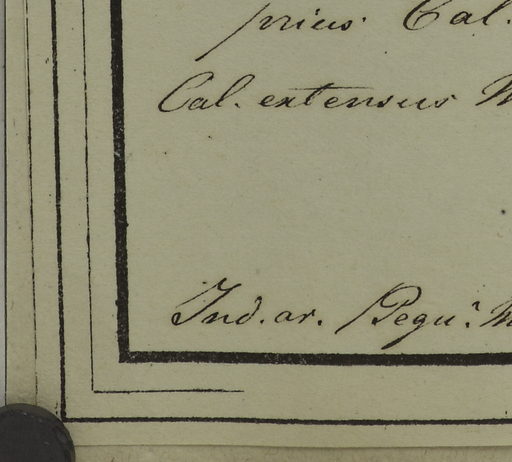 prius. Cal.
Cal. extensus W
Ind. or. Pegu.